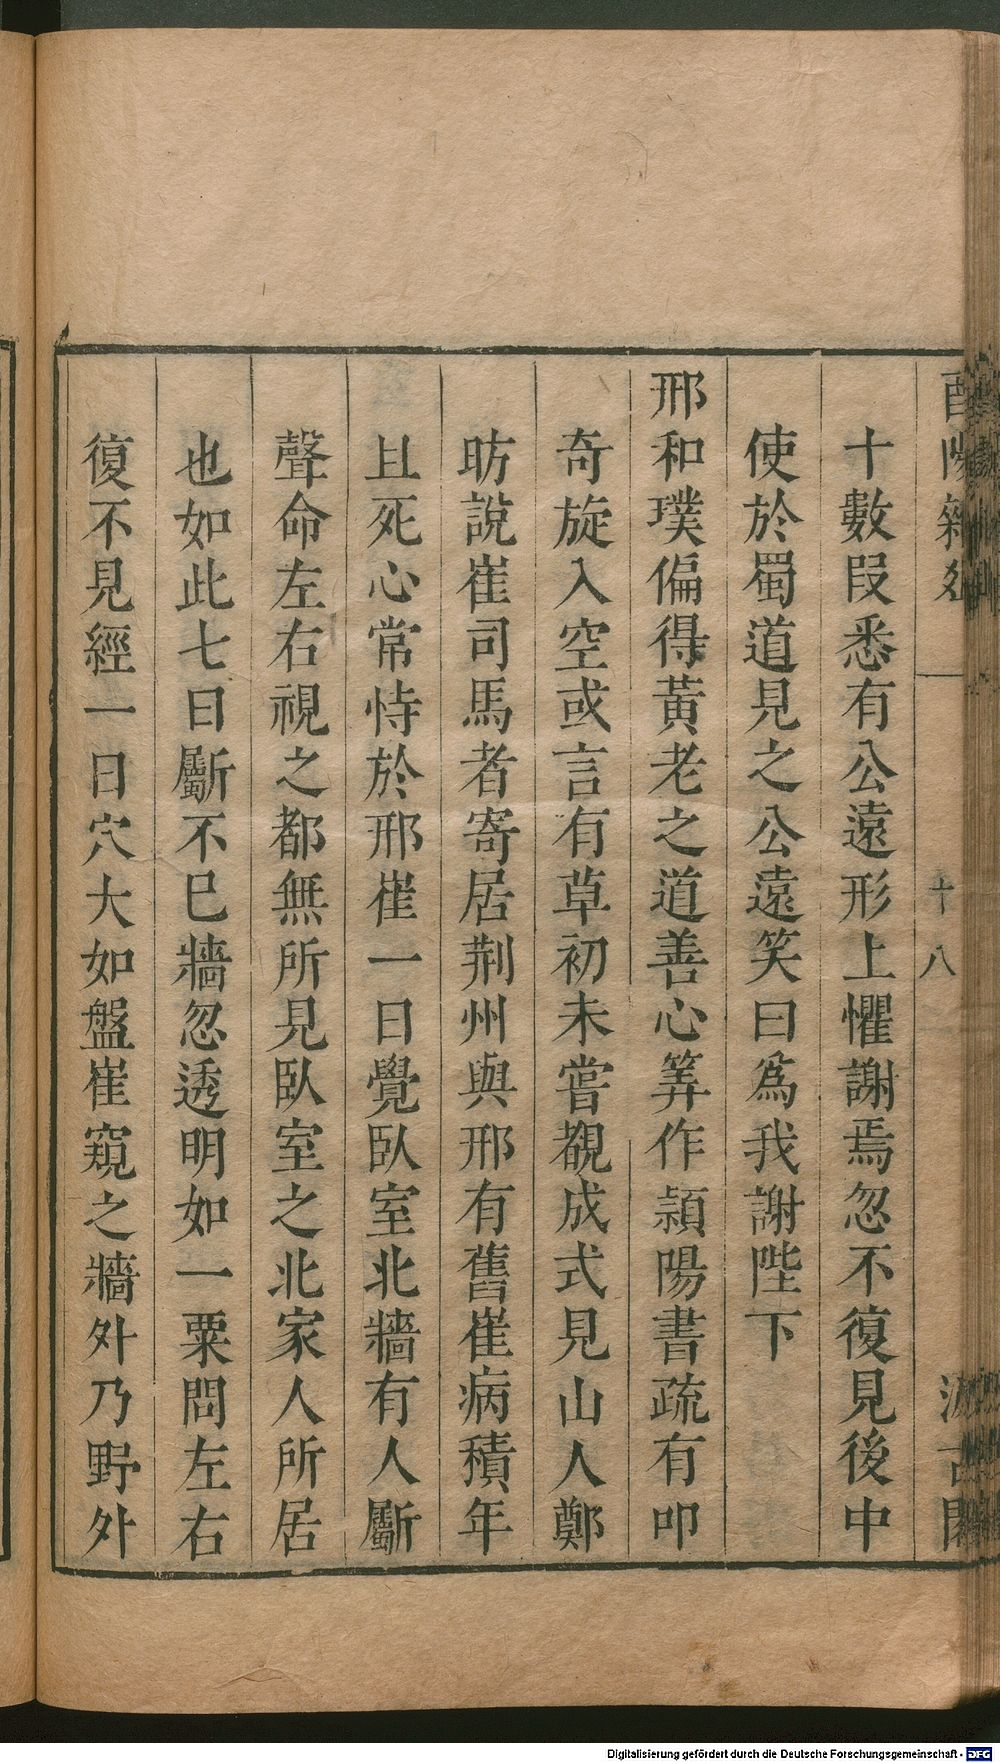 酉陽雜俎
十八
汲古閣
十數段悉有公遠形上懼謝焉忽不復見後中
使於蜀道見之公遠笑曰爲我謝陛下
邢和璞偏得黃老之道善心筭作潁陽書疏有叩
奇旋入空或言有草初未嘗覩成式見山人鄭
昉說崔司馬者寄居荆州與邢有舊崔病積年
且死心常恃於邢崔一日覺臥室北牆有人斸
聲命左右視之都無所見臥室之北家人所居
也如此七日斸不已牆忽透明如一粟問左右
復不見經一日穴大如盤崔窺之牆外乃野外
Digitalisierung gefördert durch die Deutsche Forschungsgemeinschaft - DFG